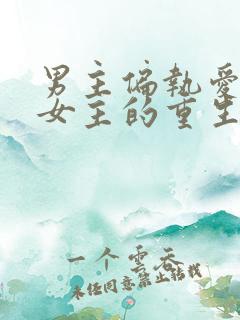 男主偏執愛
女主的重生
一个雲吞
未经同意禁止转载